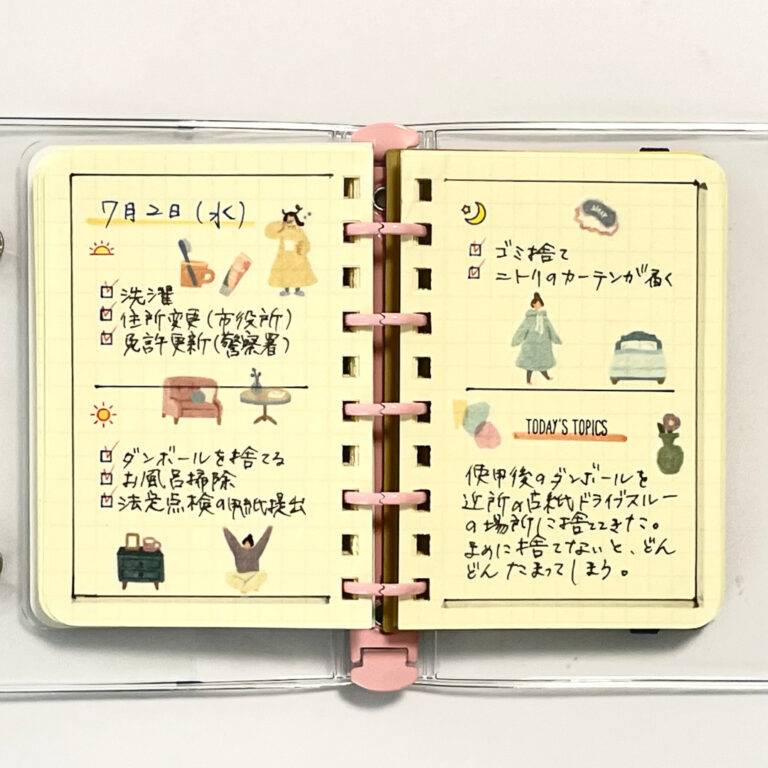 7月2日(水)
洗濯
住所変更(市役所)
免許更新(警察署)
ダンボールを捨てる
お風呂掃除
法定点検の用紙提出
sleep
ゴミ捨て
ニトリのカーテンが届く
TODAY'S TOPICS
使用後のダンボールを
近所の古紙ドライブスルー
の場所に捨ててきた。
まめに捨てないと、どん
どんたまってしまう。